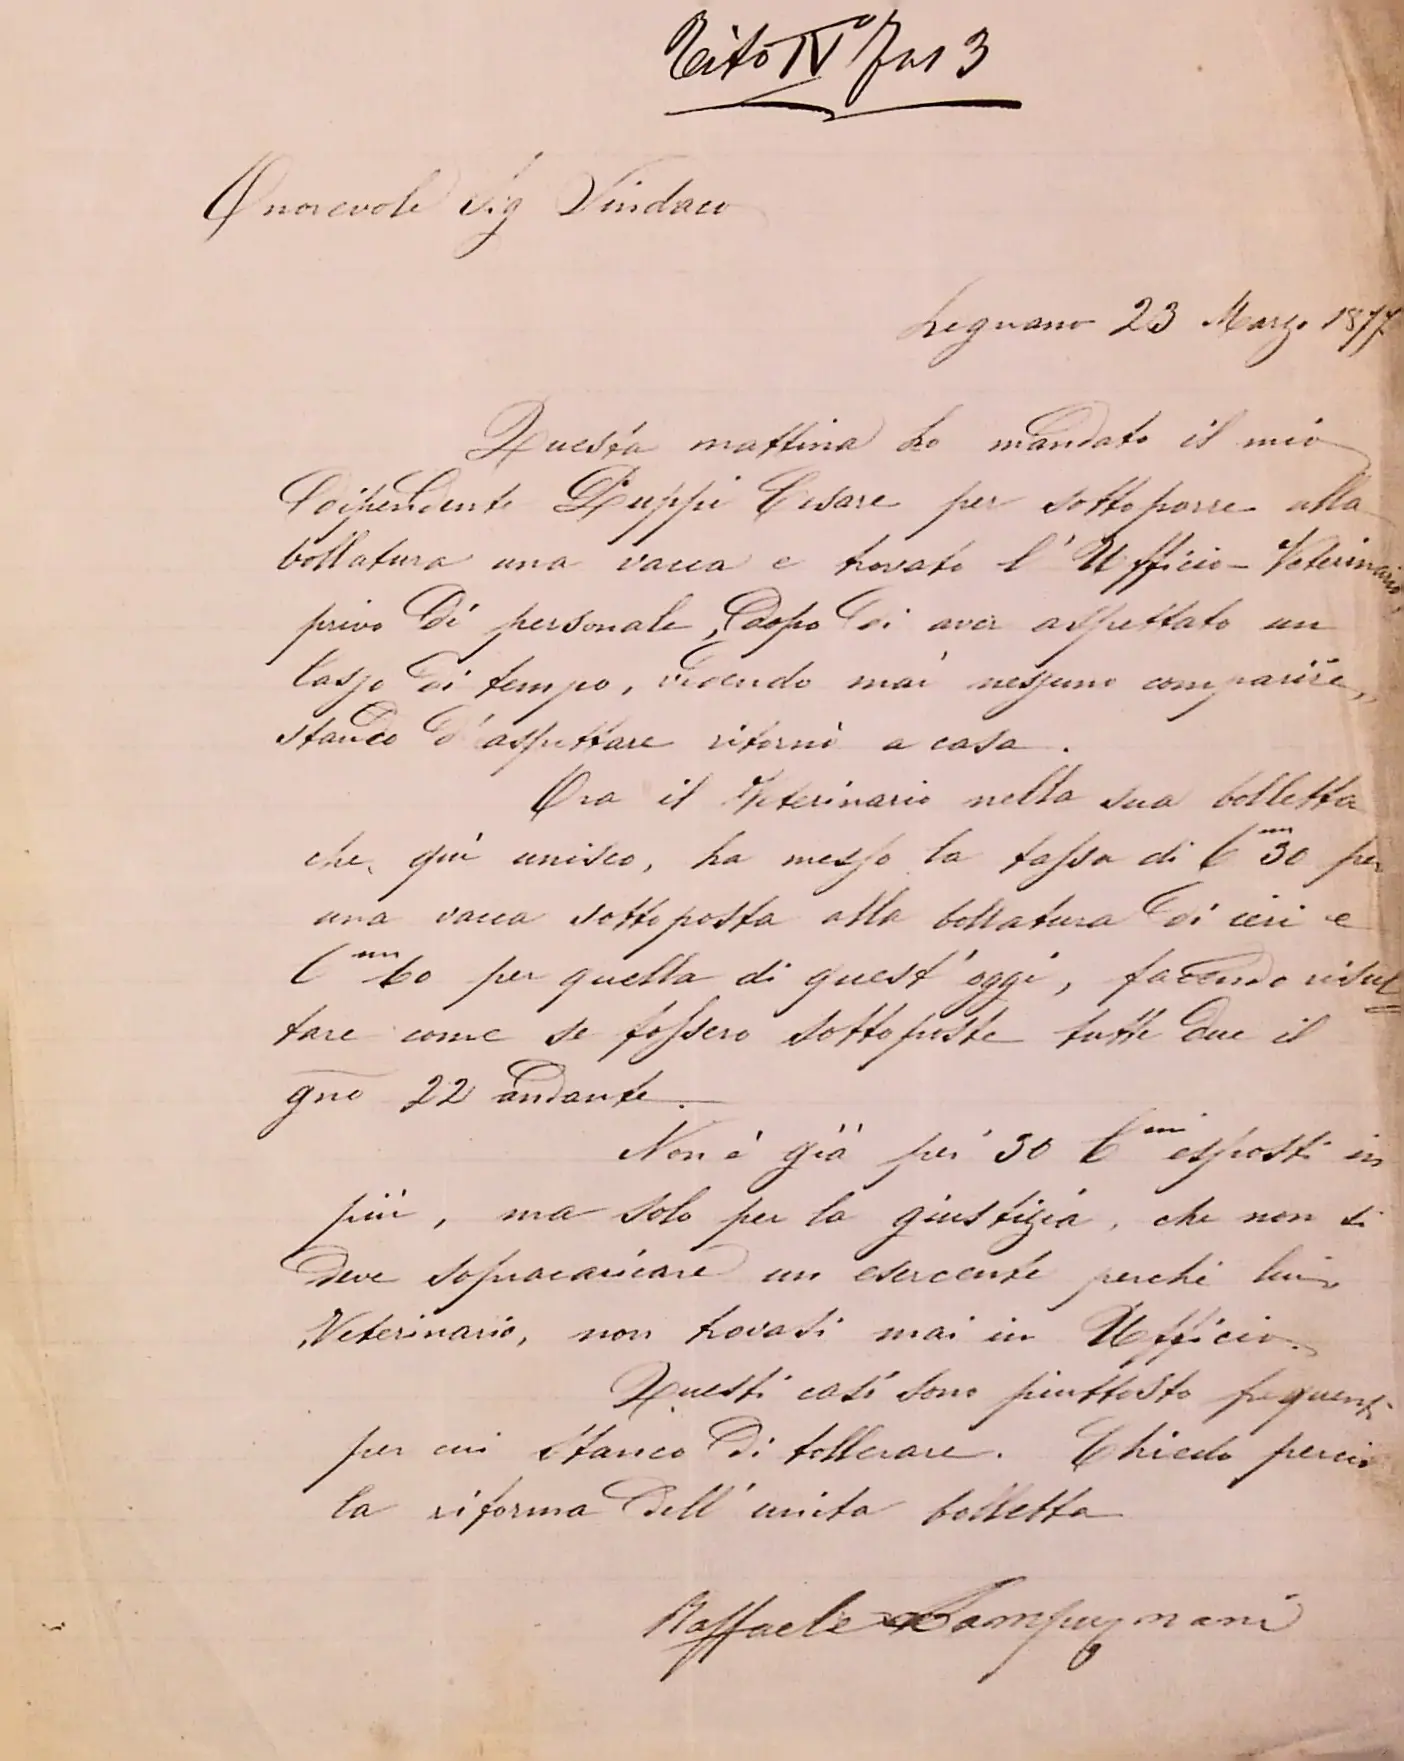 Tito IVº Fas 3
Onorevole Sig Sindaco
Legnano 23 Marzo 1877
Questa mattina ho mandato il mio
dipendente Puppi Cesare per sottoporre alla
bollatura una vacca e trovato l'Ufficio Veterinario,
privo di personale, dopo di aver aspettato un
lasso di tempo, vedendo mai nessuno comparire,
stanco d'aspettare ritornò a casa.
Ora il Veterinario nella sua bolletta
che, quì unisco, ha messo la tassa di C.mi 30 per
una vacca sottoposta alla bollatura di ieri e
C.mi 60 per quella di quest'oggi, facendo risul=
tare come se fossero sottoposte tutte due il
gno 22 andante.
Non è già pei 30 C.mi esposti in
più, ma solo per la giustizia, che non si
deve sopracaricare un esercente perchè lui
Veterinario, non trovasi mai in Ufficio.
Questi casi sono piuttosto frequenti
per cui stanco di tollerare. Chiedo perciò
la riforma dell'unita bolletta
Raffaele Lampugnani